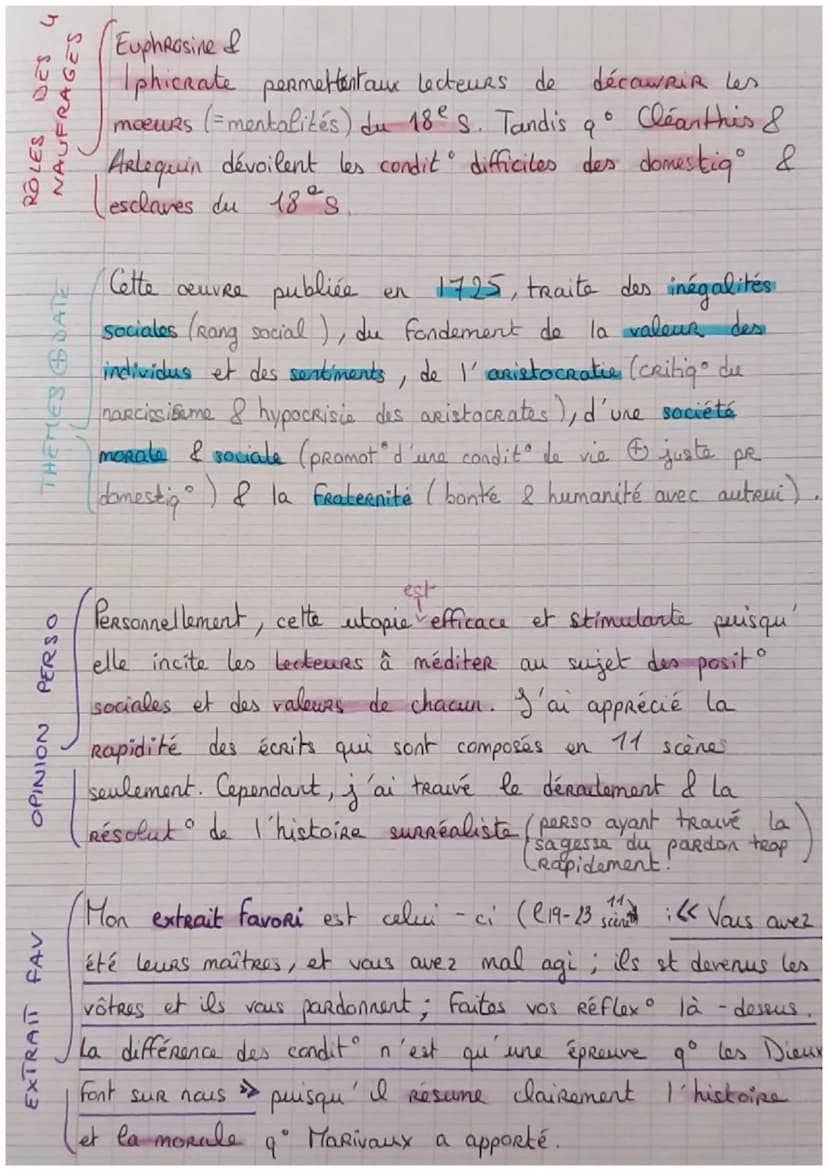 RÔLES DES 4
NAUFRAGÉS
Euphrosine &
Iphicrate permettent aux lecteurs de découvrir les
mœurs (=mentalités) du 18e s. Tandis q° Cléanthis &
Arlequin dévoilent les condit° difficiles des domestiq° &
esclaves du 18e s.
THÈMES ⊕ DATE
Cette œuvre publiée en 1725, traite des inégalités
sociales (rang social), du fondement de la valeur des
individus et des sentiments, de l'aristocratie (critiq° du
narcissisme & hypocrisie des aristocrates), d'une société
morale & sociale (promot° d'une condit° de vie ⊕ juste pr
domestiq°) & la fraternité (bonté & humanité avec autrui).
OPINION PERSO
est
Personnellement, cette utopie efficace et stimulante puisqu'
elle incite les lecteurs à méditer au sujet des posit°
sociales et des valeurs de chacun. J'ai apprécié la
rapidité des écrits qui sont composés en 11 scènes
seulement. Cependant, j'ai trouvé le déroulement & la
résolut° de l'histoire surréaliste (perso ayant trouvé la
sagesse du pardon trop
rapidement.)
EXTRAIT FAV
Mon extrait favori est celui-ci (l19-23 scène 11) : << Vous avez
été leurs maîtres, et vous avez mal agi ; ils st devenus les
vôtres et ils vous pardonnent ; Faites vos réflex° là-dessus.
La différence des condit° n'est qu'une épreuve q° les Dieux
font sur nous >> puisqu'il résume clairement l'histoire
et la morale q° Marivaux a apporté.